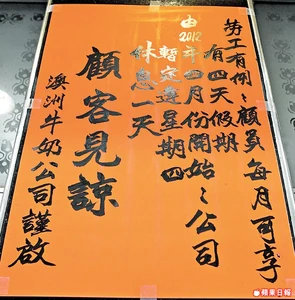 勞工有例:顧員每月可享
有四天假期
由2012年四月份開始:公司
暫定逢星期四
休息一天
顧客見諒
澳洲牛奶公司謹啟
蘋果日報